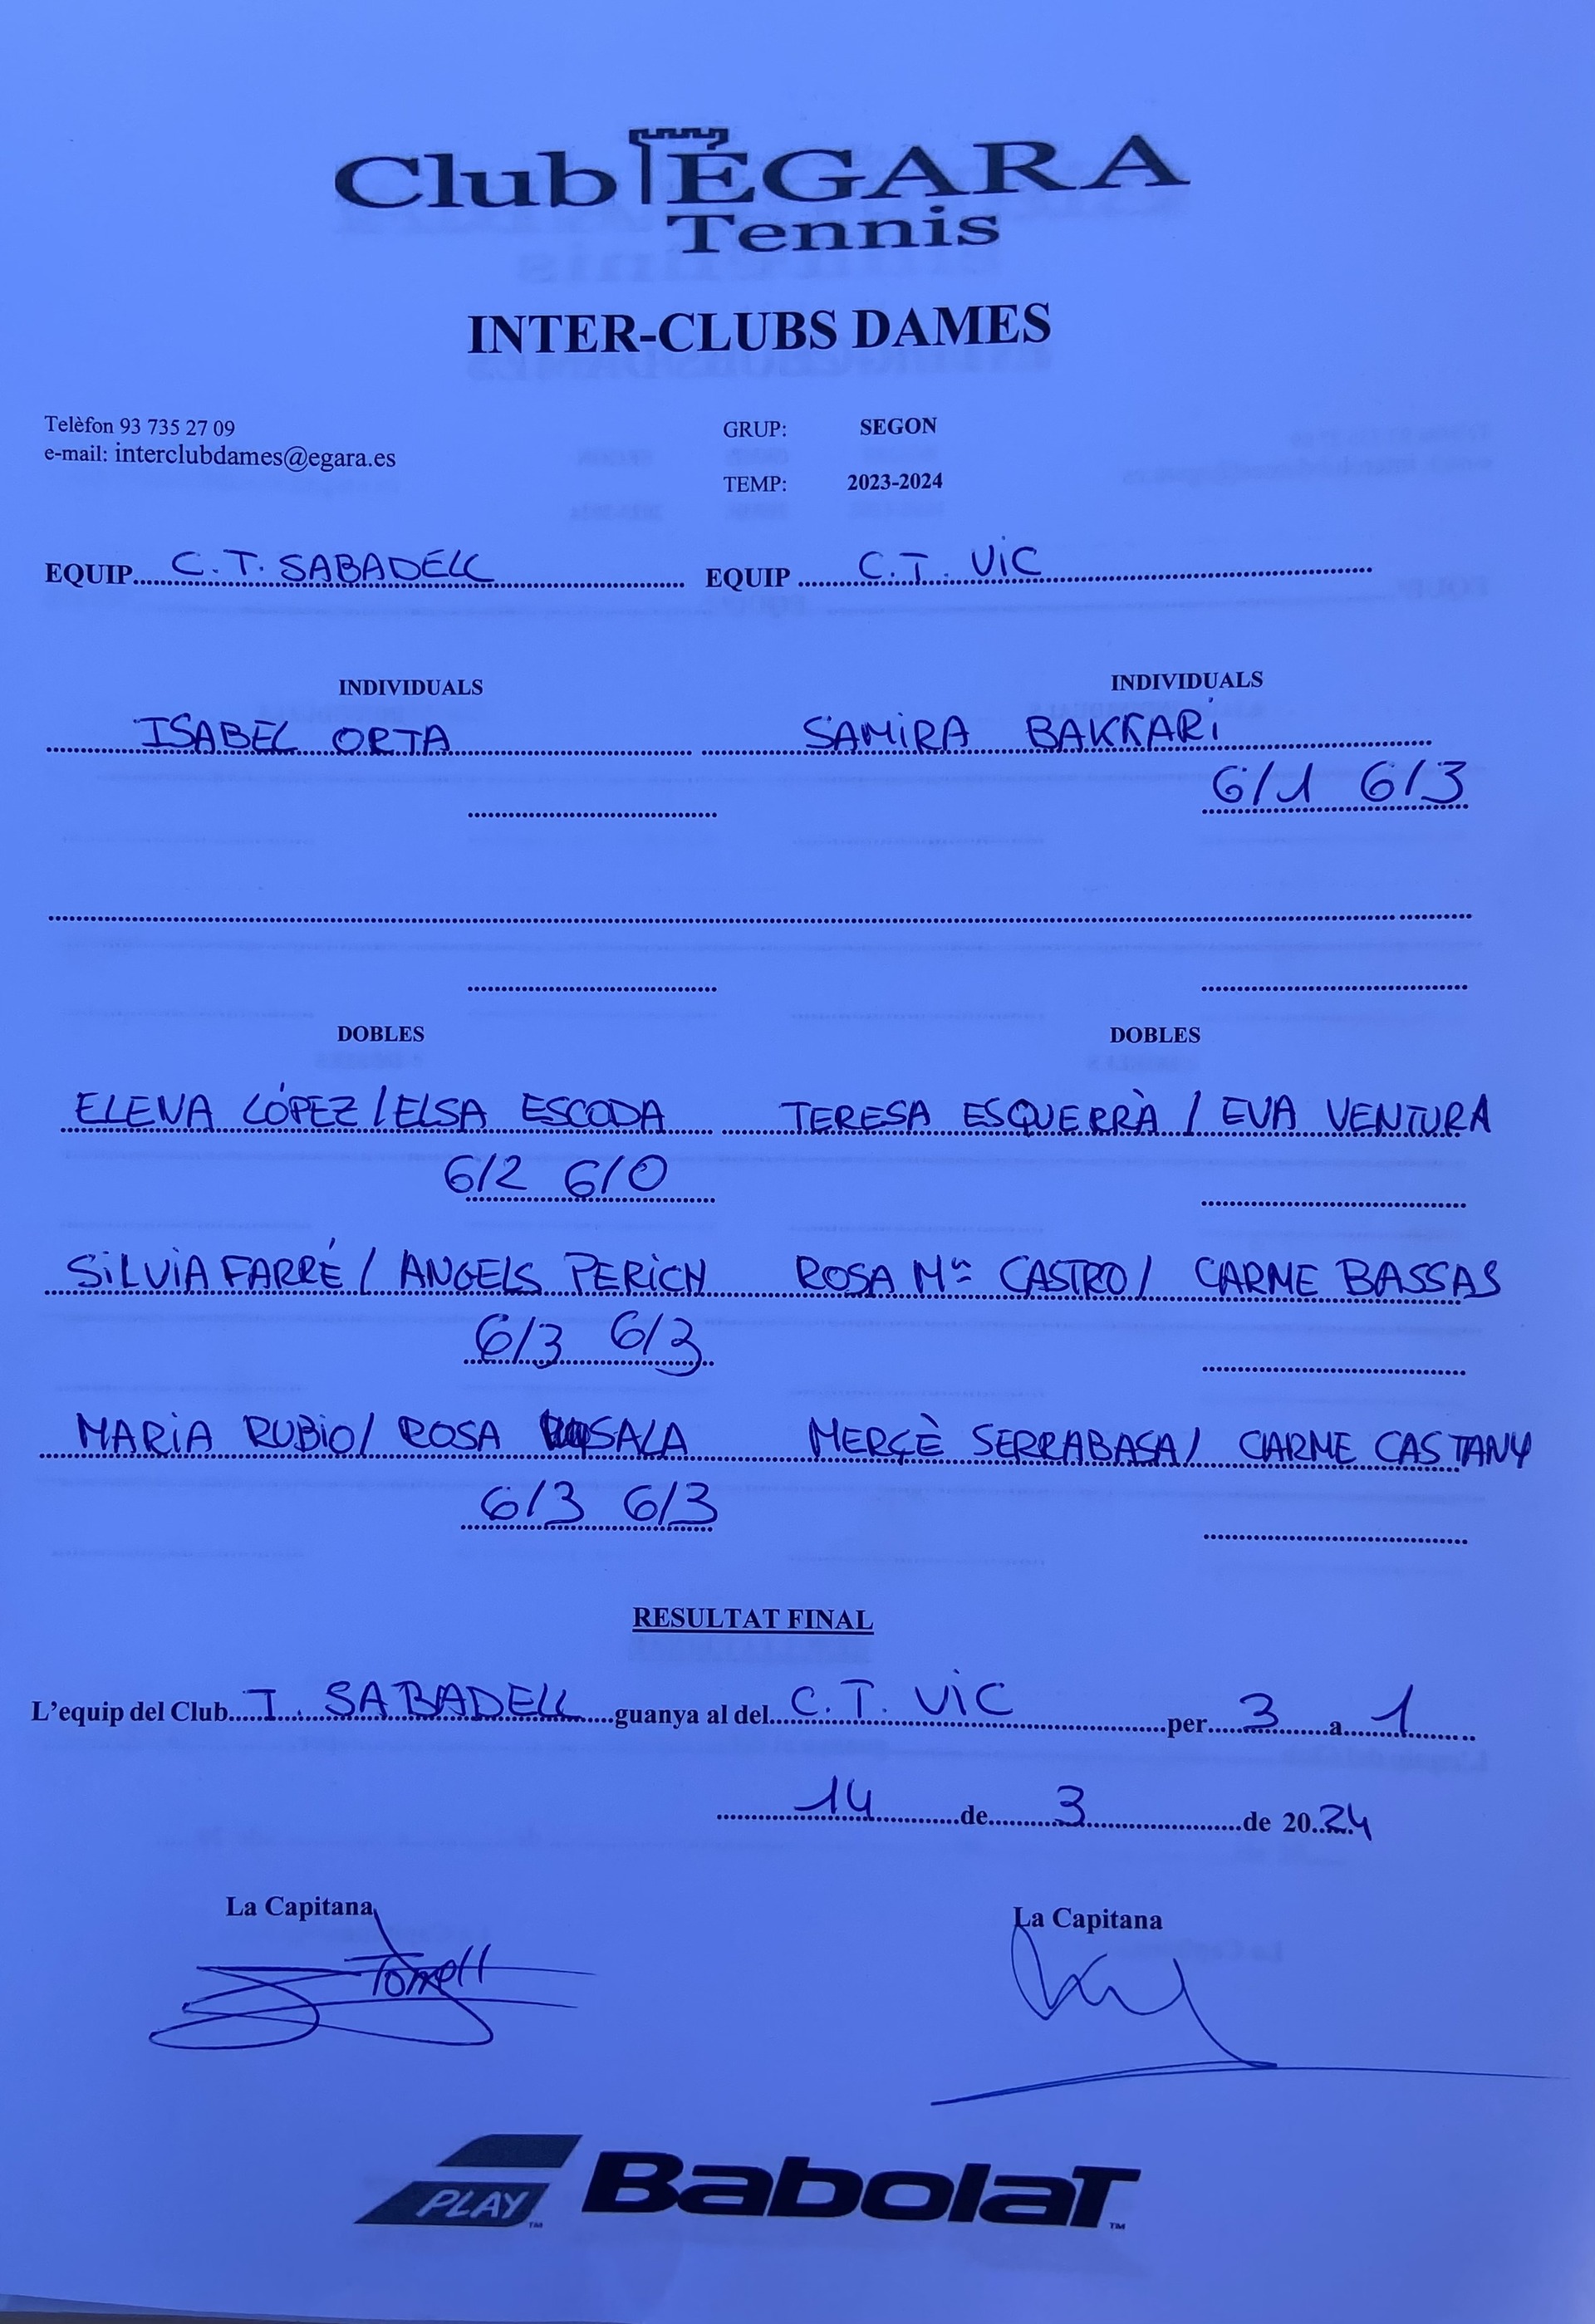 Club ÉGARA
Tennis
INTER-CLUBS DAMES
Telèfon 93 735 27 09
e-mail: interclubdames@egara.es
GRUP: SEGON
TEMP: 2023-2024
EQUIP C.T. SABADELL EQUIP C.T. VIC
INDIVIDUALS INDIVIDUALS
ISABEL ORTA SAMIRA BAKKARI
6/1 6/3
DOBLES DOBLES
ELENA LÓPEZ / ELSA ESCODA TERESA ESQUERRÀ / EVA VENTURA
6/2 6/0
SILVIA FARRÉ / ANGELS PERICH ROSA Mª CASTRO / CARME BASSAS
6/3 6/3
MARIA RUBIO / ROSA SALA MERÇÈ SERRABASA / CARME CASTANY
6/3 6/3
RESULTAT FINAL
L'equip del Club T. SABADELL guanya al del C.T. VIC per 3 a 1
14 de 3 de 2024
La Capitana La Capitana
PLAY BABOLAT